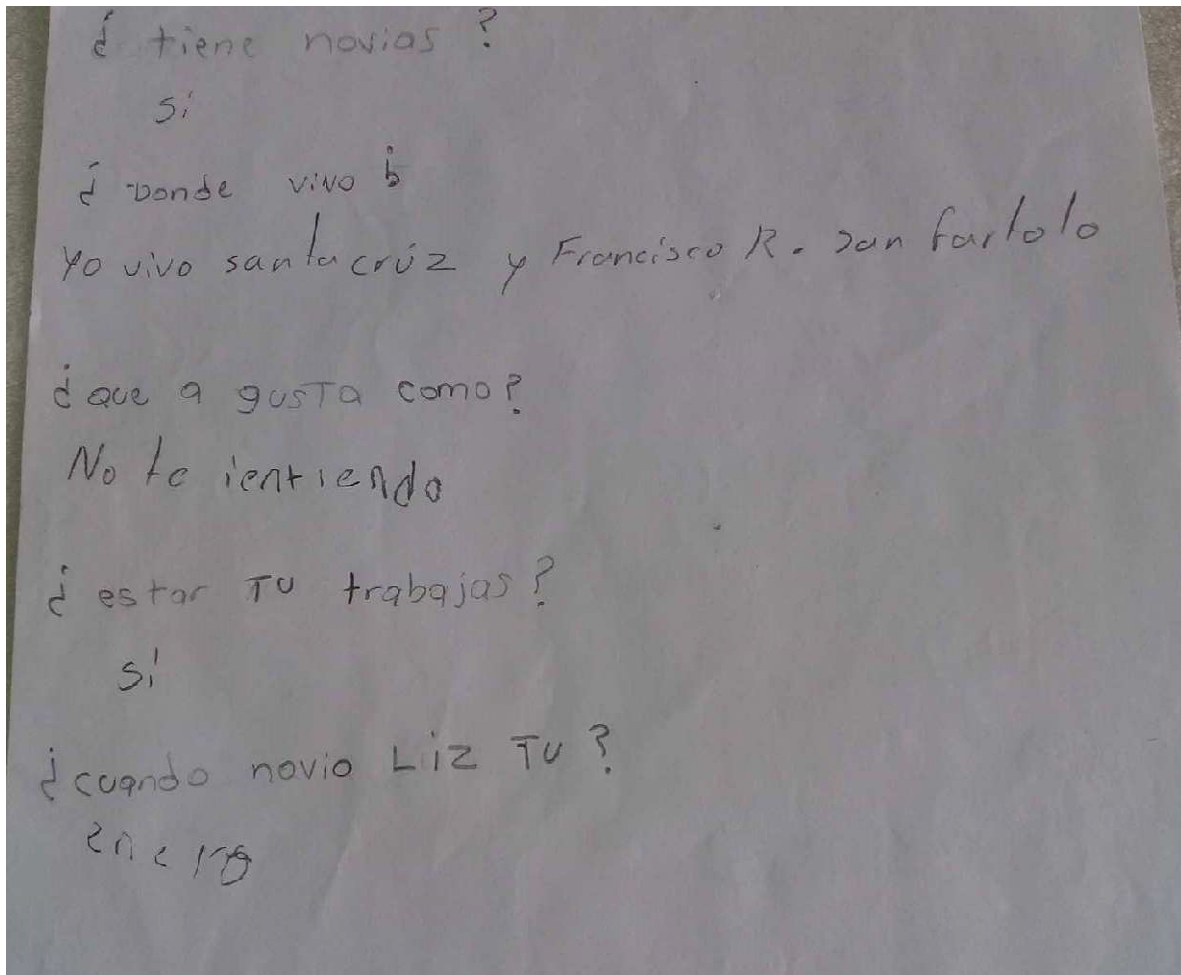 ¿ tiene novias ?
si
¿ Donde vivo ?
yo vivo santa crúz y Francisco R. san fartolo
¿ que a gusta como?
No te ientiendo
¿ estar TU trabajas?
si
¿ cuando novio Liz TU ?
enero